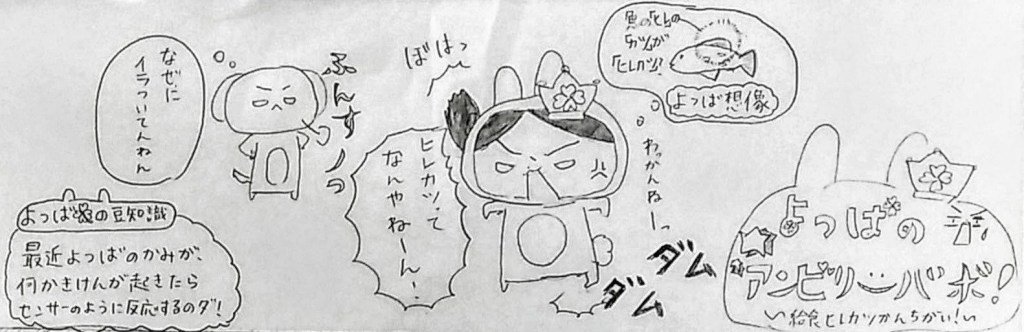 よっばの
アンビリーバボ!
〜給食ヒレカツかんちがい!〜
魚の「ヒレ」の
「カツ」が
「ヒレカツ」?
よっば想像
わっかんねーっ
ダム
ダム
ぼはっ
ヒレカツって
なんやねーん!
ふんすーっ
なぜに
イラついてんわん
よっばの豆知識
最近よっばのかみが、
何かきけんが起きたら
センサーのように反応するのダ!